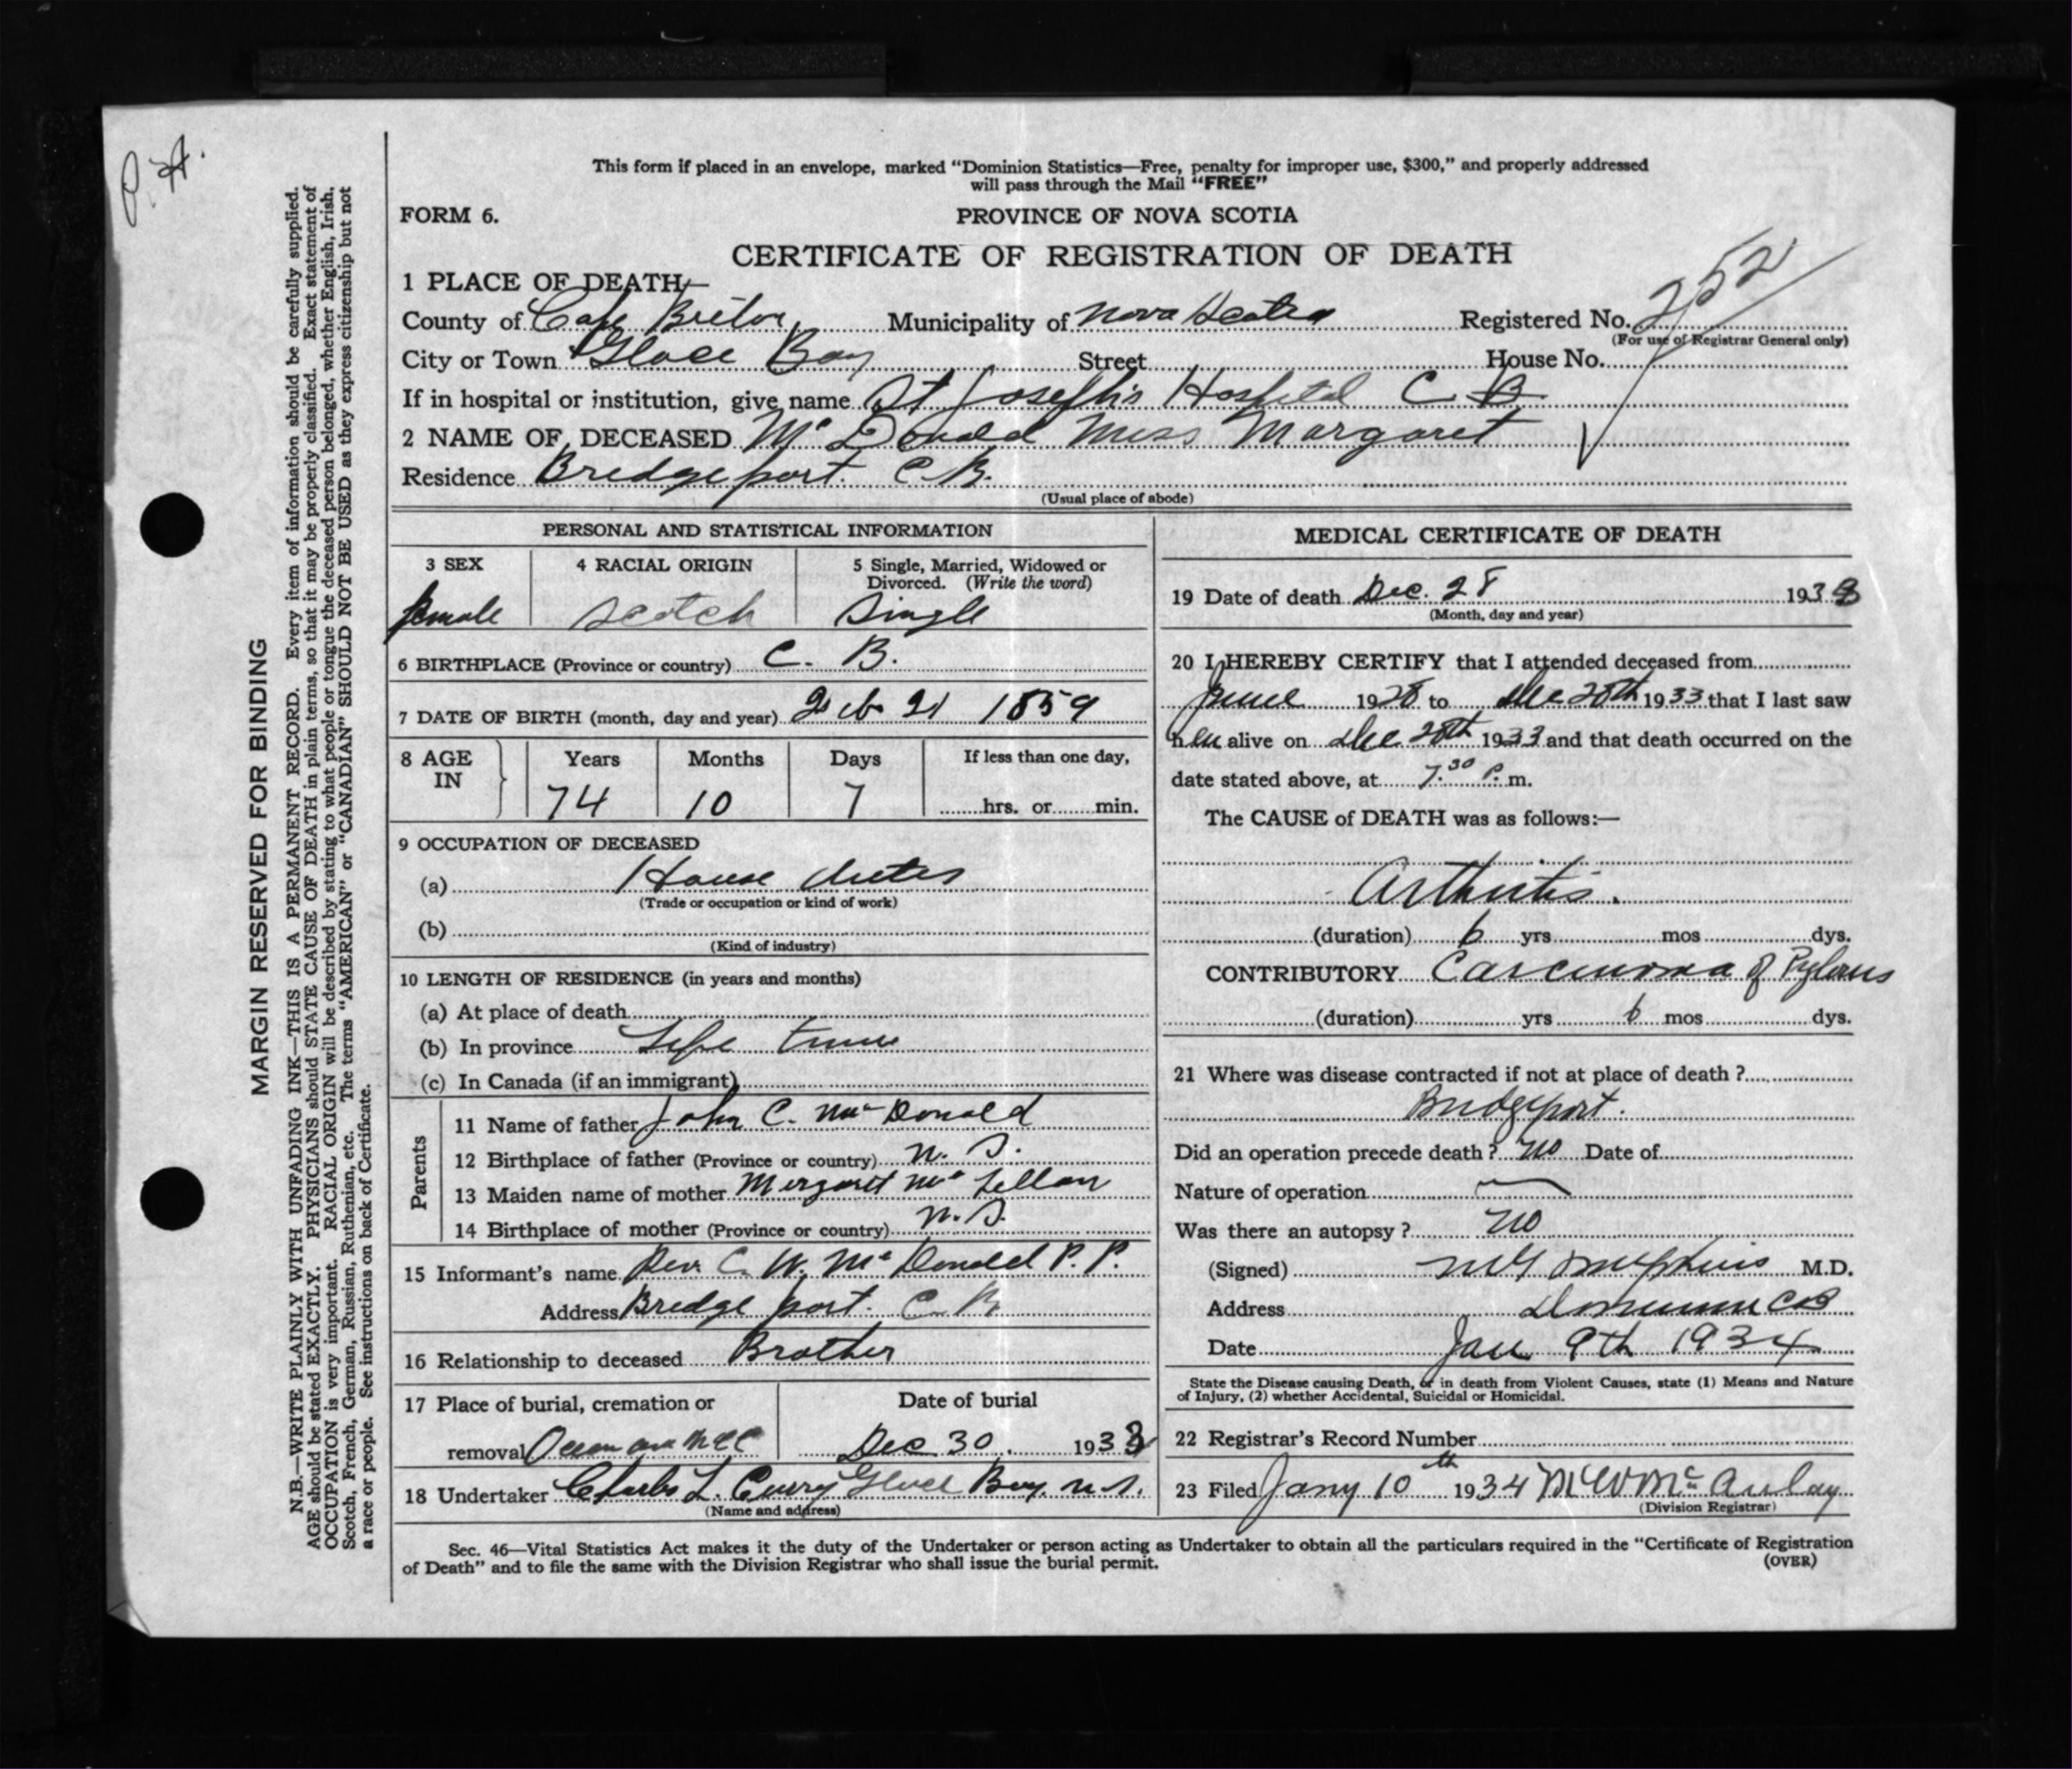 P. H.
MARGIN RESERVED FOR BINDING
N.B.—WRITE PLAINLY WITH UNFADING INK—THIS IS A PERMANENT RECORD. Every item of information should be carefully supplied.
AGE should be stated EXACTLY. PHYSICIANS should STATE CAUSE OF DEATH in plain terms, so that it may be properly classified. Exact statement of
OCCUPATION is very important. RACIAL ORIGIN will be described by stating to what people or tongue the deceased person belonged, whether English, Irish,
Scotch, French, German, Russian, Ruthenian, etc. The terms "AMERICAN" or "CANADIAN" SHOULD NOT BE USED as they express citizenship but not
a race or people. See instructions on back of Certificate.
This form if placed in an envelope, marked "Dominion Statistics—Free, penalty for improper use, $300," and properly addressed
will pass through the Mail "FREE"
FORM 6. PROVINCE OF NOVA SCOTIA
CERTIFICATE OF REGISTRATION OF DEATH
1 PLACE OF DEATH—
County of Cape Breton Municipality of Nova Scotia Registered No. 252
(For use of Registrar General only)
City or Town Glace Bay Street House No.
If in hospital or institution, give name St Joseph's Hospital C B
2 NAME OF DECEASED McDonald Miss Margaret
Residence Bridgeport. C. B.
(Usual place of abode)
PERSONAL AND STATISTICAL INFORMATION
3 SEX 4 RACIAL ORIGIN 5 Single, Married, Widowed or
Divorced. (Write the word)
female Scotch Single
6 BIRTHPLACE (Province or country) C. B.
7 DATE OF BIRTH (month, day and year) Feb 21 1859
8 AGE IN Years Months Days If less than one day,
74 10 7 hrs. or min.
9 OCCUPATION OF DECEASED
(a) House duties
(Trade or occupation or kind of work)
(b)
(Kind of industry)
10 LENGTH OF RESIDENCE (in years and months)
(a) At place of death
(b) In province Life time
(c) In Canada (if an immigrant)
Parents
11 Name of father John C. McDonald
12 Birthplace of father (Province or country) N. S.
13 Maiden name of mother Margaret McLellan
14 Birthplace of mother (Province or country) N. S.
15 Informant's name Rev. C. W. McDonald P. P.
Address Bridgeport. C. B.
16 Relationship to deceased Brother
17 Place of burial, cremation or Date of burial
removal Dec 30. 1933
18 Undertaker Charles L. Curry Glace Bay. N. S.
(Name and address)
MEDICAL CERTIFICATE OF DEATH
19 Date of death Dec. 28 1933
(Month, day and year)
20 I HEREBY CERTIFY that I attended deceased from
June 1928 to Dec 28th 1933 that I last saw
her alive on Dec 28th 1933 and that death occurred on the
date stated above, at 7.30 P. m.
The CAUSE of DEATH was as follows:—
Arthritis.
(duration) 6 yrs mos dys.
CONTRIBUTORY Carcinoma of Pylorus
(duration) yrs 6 mos dys.
21 Where was disease contracted if not at place of death ?
Bridgeport.
Did an operation precede death ? No Date of
Nature of operation —
Was there an autopsy ? No
(Signed) M.D.
Address Dominion CB
Date Jan 9th 1934
State the Disease causing Death, or in death from Violent Causes, state (1) Means and Nature
of Injury, (2) whether Accidental, Suicidal or Homicidal.
22 Registrar's Record Number
23 Filed Jany 10th 1934 McAulay
(Division Registrar)
Sec. 46—Vital Statistics Act makes it the duty of the Undertaker or person acting as Undertaker to obtain all the particulars required in the "Certificate of Registration
of Death" and to file the same with the Division Registrar who shall issue the burial permit. (OVER)